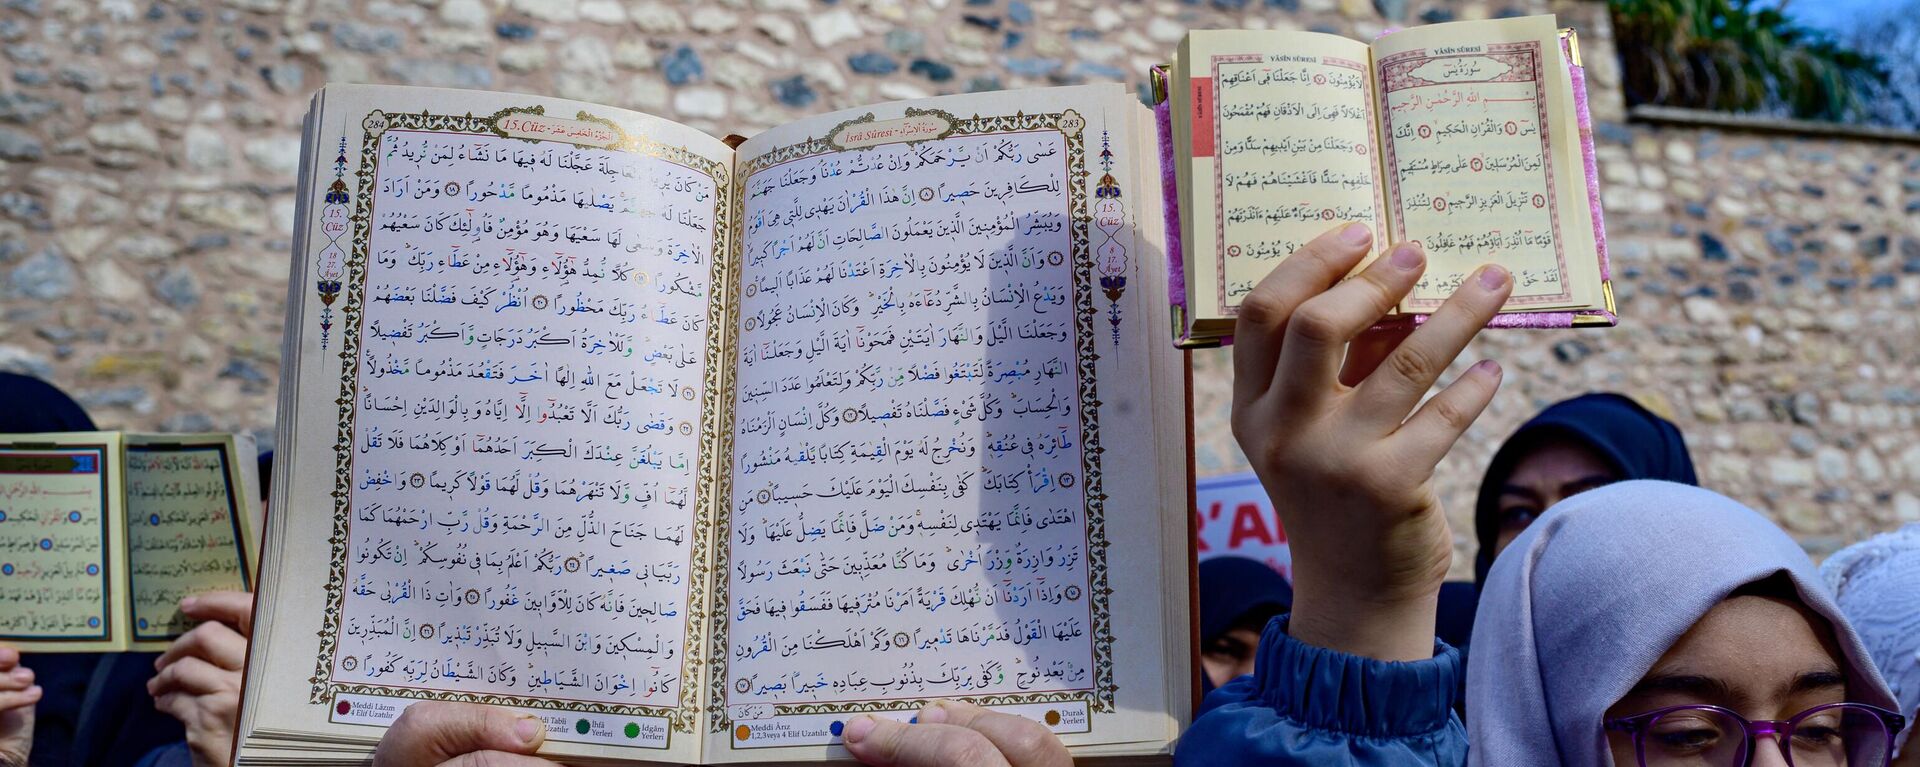 283
İsrâ Sûresi - سورة الإسراء
عَسٰى رَبُّكُمْ اَنْ يَرْحَمَكُمْ وَاِنْ عُدْتُمْ عُدْنَا وَجَعَلْنَا جَهَنَّمَ
لِلْكَافِرِينَ حَصِيرًا ٨ اِنَّ هٰذَا الْقُرْاٰنَ يَهْدِى لِلَّتِى هِىَ اَقْوَمُ
وَيُبَشِّرُ الْمُؤْمِنِينَ الَّذِينَ يَعْمَلُونَ الصَّالِحَاتِ اَنَّ لَهُمْ اَجْرًا كَبِيرًا
٩ وَاَنَّ الَّذِينَ لَا يُؤْمِنُونَ بِالْاٰخِرَةِ اَعْتَدْنَا لَهُمْ عَذَابًا اَلِيمًا ١٠
وَيَدْعُ الْاِنْسَانُ بِالشَّرِّ دُعَاءَهُ بِالْخَيْرِ وَكَانَ الْاِنْسَانُ عَجُولًا ١١
وَجَعَلْنَا الَّيْلَ وَالنَّهَارَ اٰيَتَيْنِ فَمَحَوْنَا اٰيَةَ الَّيْلِ وَجَعَلْنَا اٰيَةَ
النَّهَارِ مُبْصِرَةً لِتَبْتَغُوا فَضْلًا مِنْ رَبِّكُمْ وَلِتَعْلَمُوا عَدَدَ السِّنِينَ
وَالْحِسَابَ وَكُلَّ شَىْءٍ فَصَّلْنَاهُ تَفْصِيلًا ١٢ وَكُلَّ اِنْسَانٍ اَلْزَمْنَاهُ
طَائِرَهُ فِى عُنُقِهِ وَنُخْرِجُ لَهُ يَوْمَ الْقِيٰمَةِ كِتَابًا يَلْقٰيهُ مَنْشُورًا
١٣ اِقْرَأْ كِتَابَكَ كَفٰى بِنَفْسِكَ الْيَوْمَ عَلَيْكَ حَسِيبًا ١٤ مَنِ
اهْتَدٰى فَاِنَّمَا يَهْتَدِى لِنَفْسِهِ وَمَنْ ضَلَّ فَاِنَّمَا يَضِلُّ عَلَيْهَا وَلَا
تَزِرُ وَازِرَةٌ وِزْرَ اُخْرٰى وَمَا كُنَّا مُعَذِّبِينَ حَتّٰى نَبْعَثَ رَسُولًا
١٥ وَاِذَا اَرَدْنَا اَنْ نُهْلِكَ قَرْيَةً اَمَرْنَا مُتْرَفِيهَا فَفَسَقُوا فِيهَا فَحَقَّ
عَلَيْهَا الْقَوْلُ فَدَمَّرْنَاهَا تَدْمِيرًا ١٦ وَكَمْ اَهْلَكْنَا مِنَ الْقُرُونِ
مِنْ بَعْدِ نُوحٍ وَكَفٰى بِرَبِّكَ بِذُنُوبِ عِبَادِهِ خَبِيرًا بَصِيرًا ١٧
مَنْ كَانَ
15.
Cüz
8
17.
Âyet
Meddi Ârız
1,2,3veya 4 Elif Uzatılır
Durak
Yerleri
284
15.Cüz - الجزء الخامس عشر
مَنْ كَانَ يُرِيدُ الْعَاجِلَةَ عَجَّلْنَا لَهُ فِيهَا مَا نَشَاءُ لِمَنْ نُرِيدُ ثُمَّ
جَعَلْنَا لَهُ جَهَنَّمَ يَصْلٰيهَا مَذْمُومًا مَدْحُورًا ١٨ وَمَنْ اَرَادَ
الْاٰخِرَةَ وَسَعٰى لَهَا سَعْيَهَا وَهُوَ مُؤْمِنٌ فَاُولٰئِكَ كَانَ سَعْيُهُمْ
مَشْكُورًا ١٩ كُلًّا نُمِدُّ هٰؤُلَاءِ وَهٰؤُلَاءِ مِنْ عَطَاءِ رَبِّكَ وَمَا
كَانَ عَطَاءُ رَبِّكَ مَحْظُورًا ٢٠ اُنْظُرْ كَيْفَ فَضَّلْنَا بَعْضَهُمْ
عَلٰى بَعْضٍ وَلَلْاٰخِرَةُ اَكْبَرُ دَرَجَاتٍ وَاَكْبَرُ تَفْضِيلًا
٢١ لَا تَجْعَلْ مَعَ اللّٰهِ اِلٰهًا اٰخَرَ فَتَقْعُدَ مَذْمُومًا مَخْذُولًا
٢٢ وَقَضٰى رَبُّكَ اَلَّا تَعْبُدُوا اِلَّا اِيَّاهُ وَبِالْوَالِدَيْنِ اِحْسَانًا
اِمَّا يَبْلُغَنَّ عِنْدَكَ الْكِبَرَ اَحَدُهُمَا اَوْ كِلَاهُمَا فَلَا تَقُلْ
لَهُمَا اُفٍّ وَلَا تَنْهَرْهُمَا وَقُلْ لَهُمَا قَوْلًا كَرِيمًا ٢٣ وَاخْفِضْ
لَهُمَا جَنَاحَ الذُّلِّ مِنَ الرَّحْمَةِ وَقُلْ رَبِّ ارْحَمْهُمَا كَمَا
رَبَّيَانِى صَغِيرًا ٢٤ رَبُّكُمْ اَعْلَمُ بِمَا فِى نُفُوسِكُمْ اِنْ تَكُونُوا
صَالِحِينَ فَاِنَّهُ كَانَ لِلْاَوَّابِينَ غَفُورًا ٢٥ وَاٰتِ ذَا الْقُرْبٰى حَقَّهُ
وَالْمِسْكِينَ وَابْنَ السَّبِيلِ وَلَا تُبَذِّرْ تَبْذِيرًا ٢٦ اِنَّ الْمُبَذِّرِينَ
كَانُوا اِخْوَانَ الشَّيَاطِينِ وَكَانَ الشَّيْطَانُ لِرَبِّهِ كَفُورًا ٢٧
15.
Cüz
18
27.
Âyet
Meddi Lâzım
4 Elif Uzatılır
İhfâ
Yerleri
İdğâm
Yerleri
YÂSÎN SÛRESİ
سُورَةُ يٰسٓ
بِسْمِ اللّٰهِ الرَّحْمٰنِ الرَّحِيمِ
يٰسٓ ١ وَالْقُرْاٰنِ الْحَكِيمِ ٢ اِنَّكَ
لَمِنَ الْمُرْسَلِينَ ٣ عَلٰى صِرَاطٍ مُسْتَقِيمٍ
٤ تَنْزِيلَ الْعَزِيزِ الرَّحِيمِ ٥ لِتُنْذِرَ
قَوْمًا مَا اُنْذِرَ اٰبَاؤُهُمْ فَهُمْ غَافِلُونَ ٦
لَقَدْ حَقَّ اَكْثَرِهِمْ فَهُمْ
YÂSÎN SÛRESİ
لَا يُؤْمِنُونَ ٧ اِنَّا جَعَلْنَا فِى اَعْنَاقِهِمْ
اَغْلَالًا فَهِىَ اِلَى الْاَذْقَانِ فَهُمْ مُقْمَحُونَ
٨ وَجَعَلْنَا مِنْ بَيْنِ اَيْدِيهِمْ سَدًّا وَمِنْ
خَلْفِهِمْ سَدًّا فَاَغْشَيْنَاهُمْ فَهُمْ لَا
يُبْصِرُونَ ٩ وَسَوَاءٌ عَلَيْهِمْ ءَاَنْذَرْتَهُمْ
لَا يُؤْمِنُونَ ١٠
وَخَشِىَ
R'A